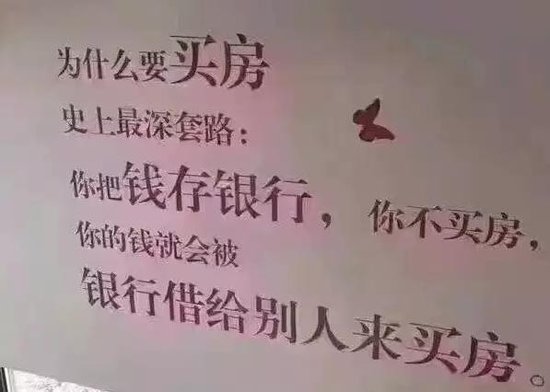 为什么要买房
史上最深套路：
你把钱存银行，你不买房，
你的钱就会被
银行借给别人来买房。